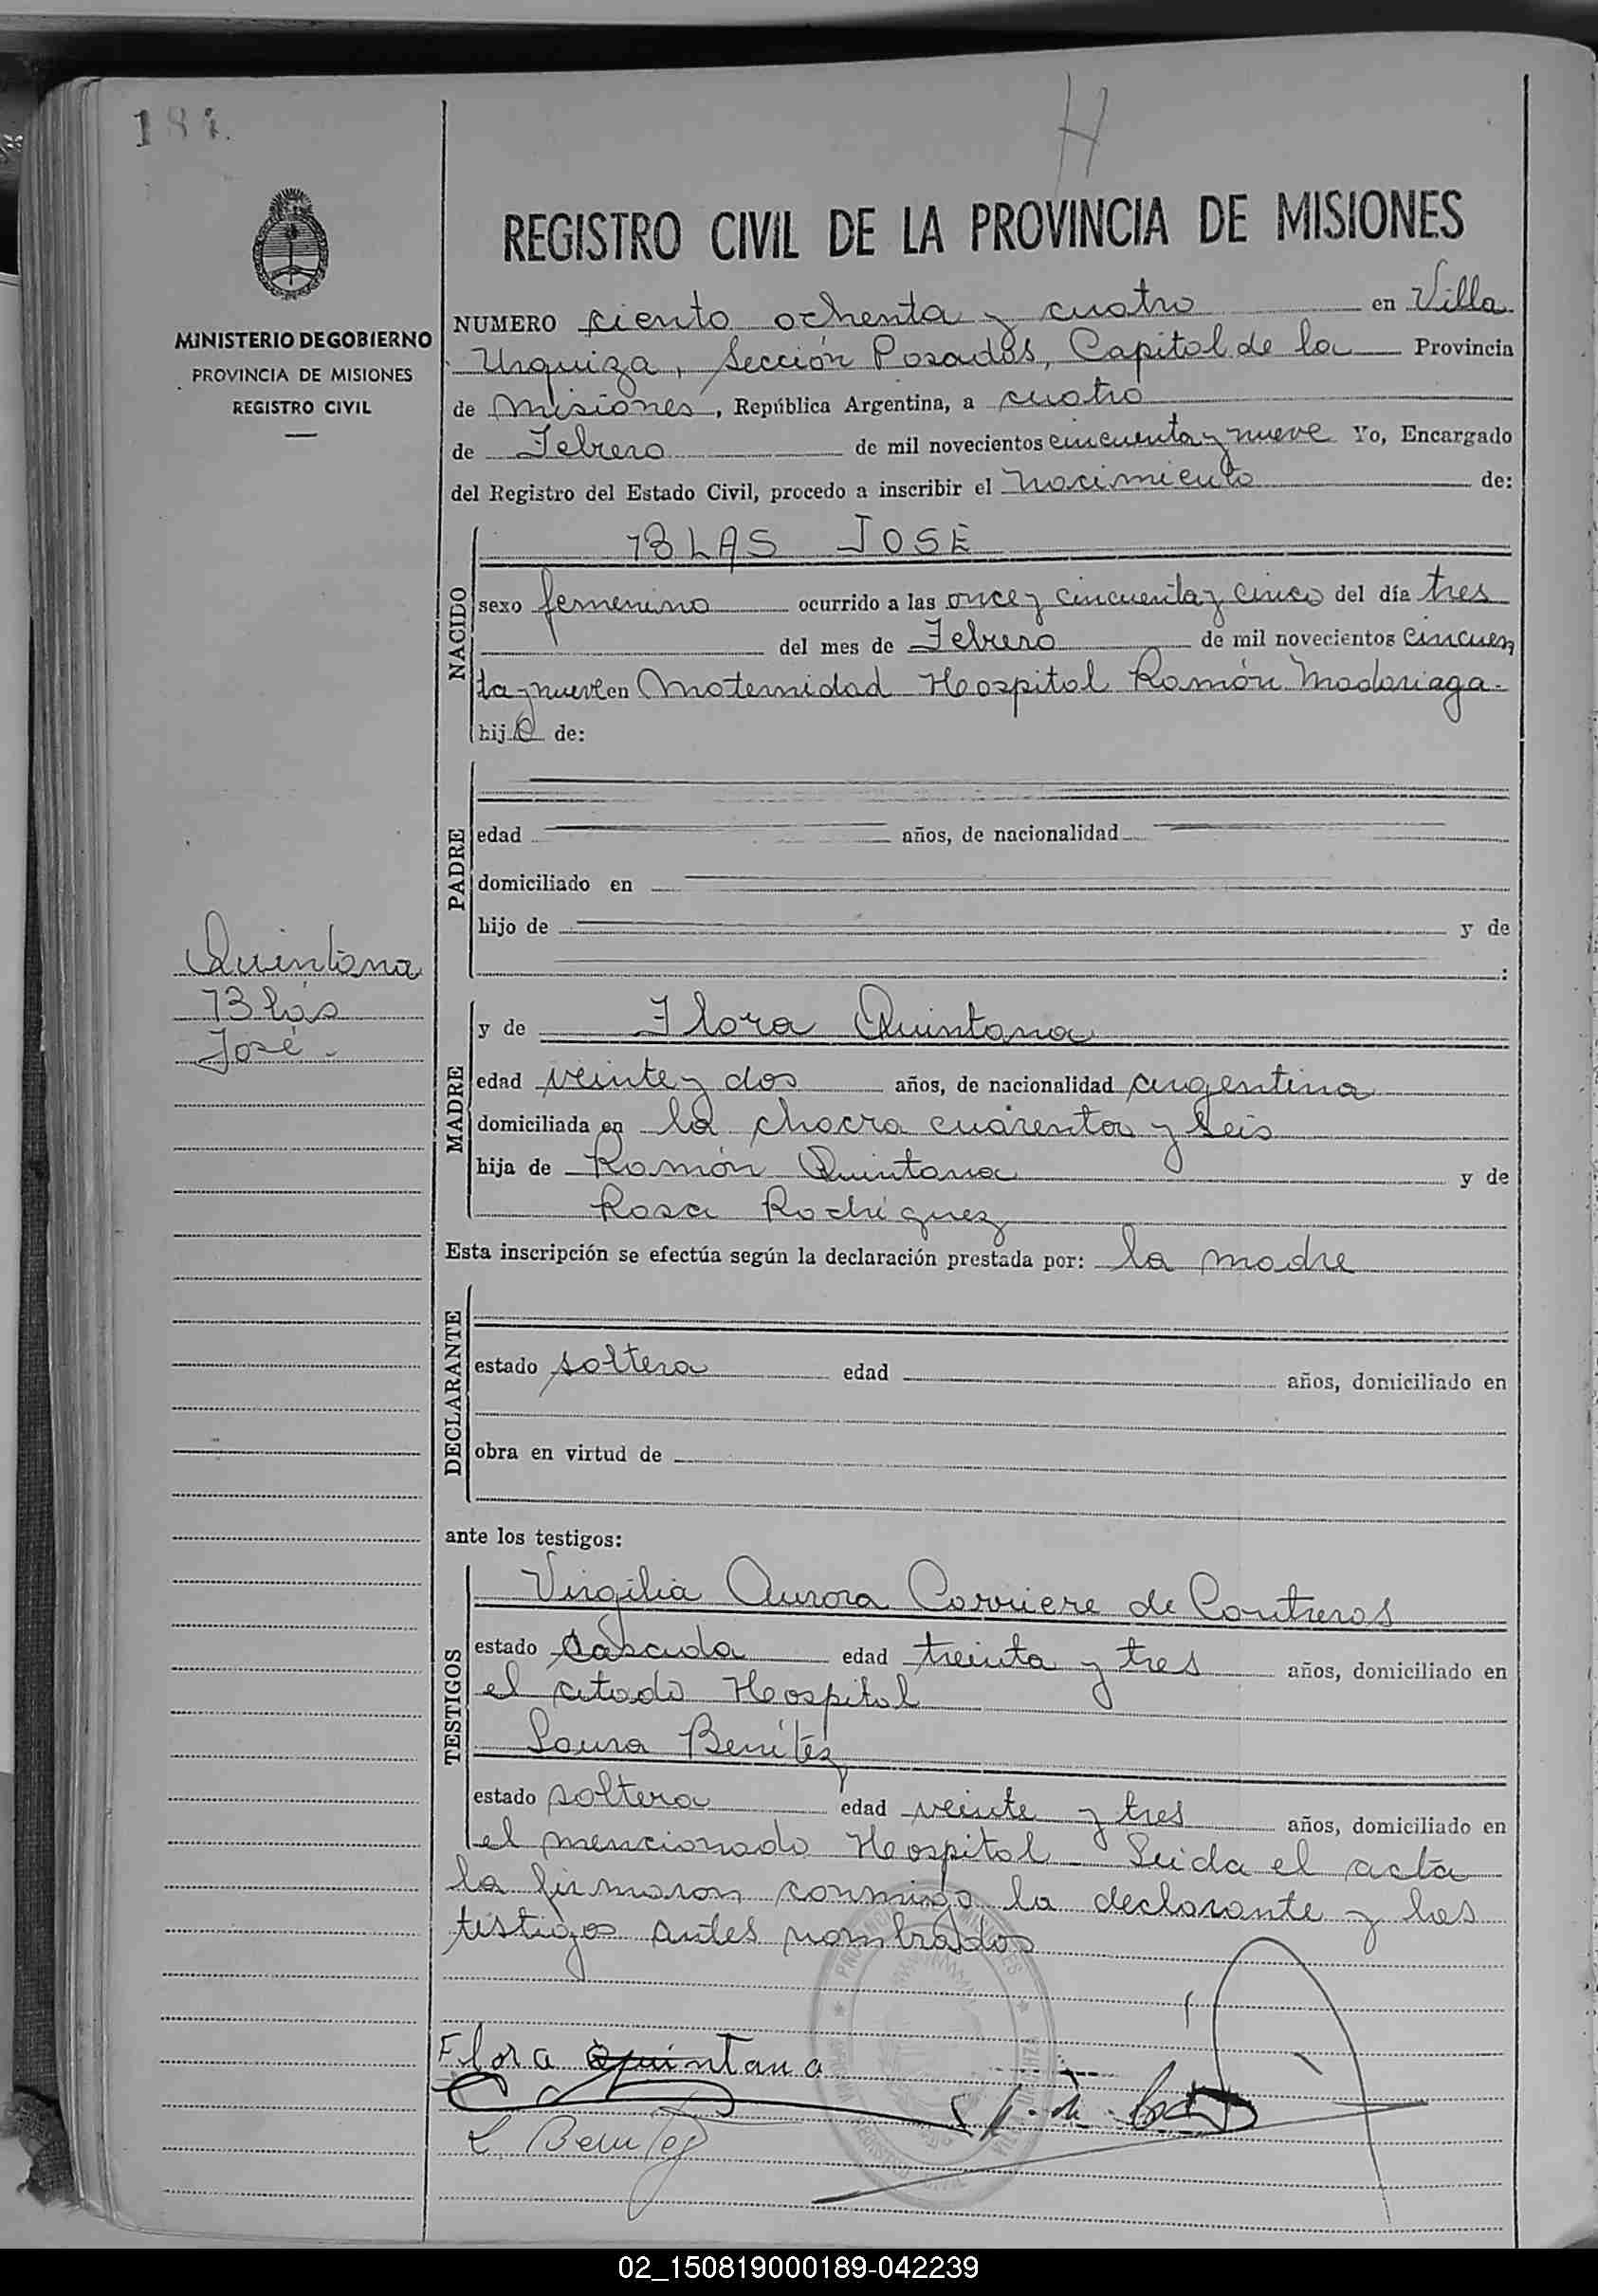 184.
H
MINISTERIO DE GOBIERNO
PROVINCIA DE MISIONES
REGISTRO CIVIL
REGISTRO CIVIL DE LA PROVINCIA DE MISIONES
NUMERO ciento ochenta y cuatro en Villa
Urquiza, Sección Posadas, Capital de la Provincia
de Misiones, República Argentina, a cuatro
de Febrero de mil novecientos cincuenta y nueve Yo, Encargado
del Registro del Estado Civil, procedo a inscribir el nacimiento de:
NACIDO
BLAS JOSÉ
sexo femenino ocurrido a las once y cincuenta y cinco del día tres
del mes de Febrero de mil novecientos cincuen
ta y nueve en Maternidad Hospital Ramón Madariaga.
hijo de:
PADRE
edad años, de nacionalidad
domiciliado en
hijo de y de
:
Quintana
Blás
José.
MADRE
y de Flora Quintana
edad veinte y dos años, de nacionalidad argentina
domiciliada en la chacra cuarenta y seis
hija de Ramón Quintana y de
Rosa Rodríguez
Esta inscripción se efectúa según la declaración prestada por: la madre
DECLARANTE
estado soltera edad años, domiciliado en
obra en virtud de
ante los testigos:
TESTIGOS
Virgilia Aurora Carriere de Contreras
estado casada edad treinta y tres años, domiciliado en
el citado Hospital
Laura Benítez
estado soltera edad veinte y tres años, domiciliado en
el mencionado Hospital Leida el acta
la firmaron conmigo la declarante y los
testigos antes nombrados
Flora Quintana
L. Benitez
02_150819000189-042239